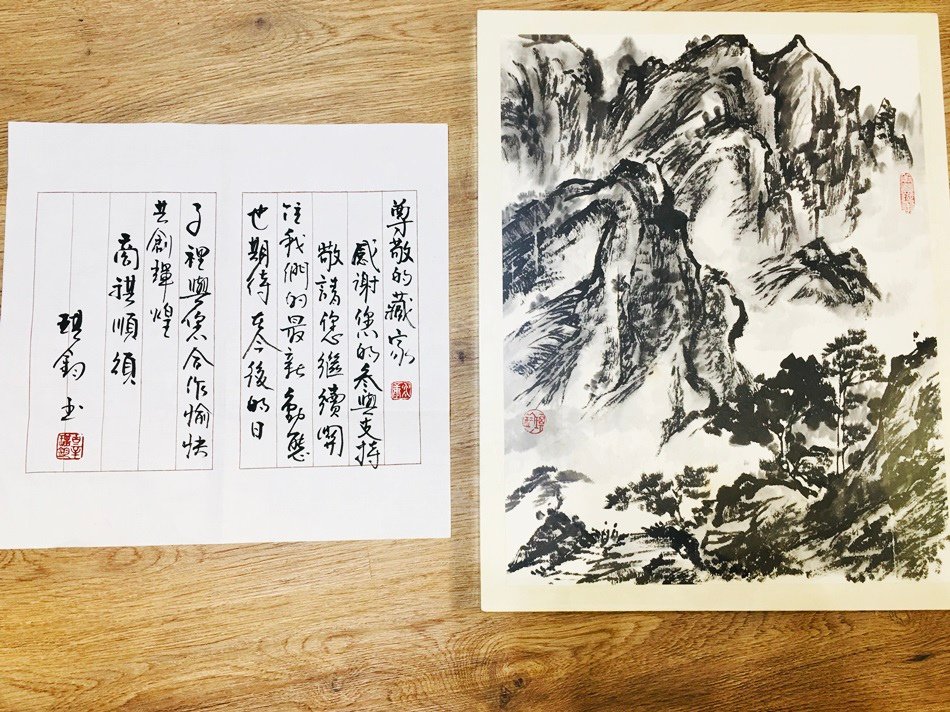 尊敬的藏家
感谢您的参與支持
敬請您繼續関
注我們的最新動態
也期待在今後的日
子裡與您合作愉快
共創輝煌
商祺順頌